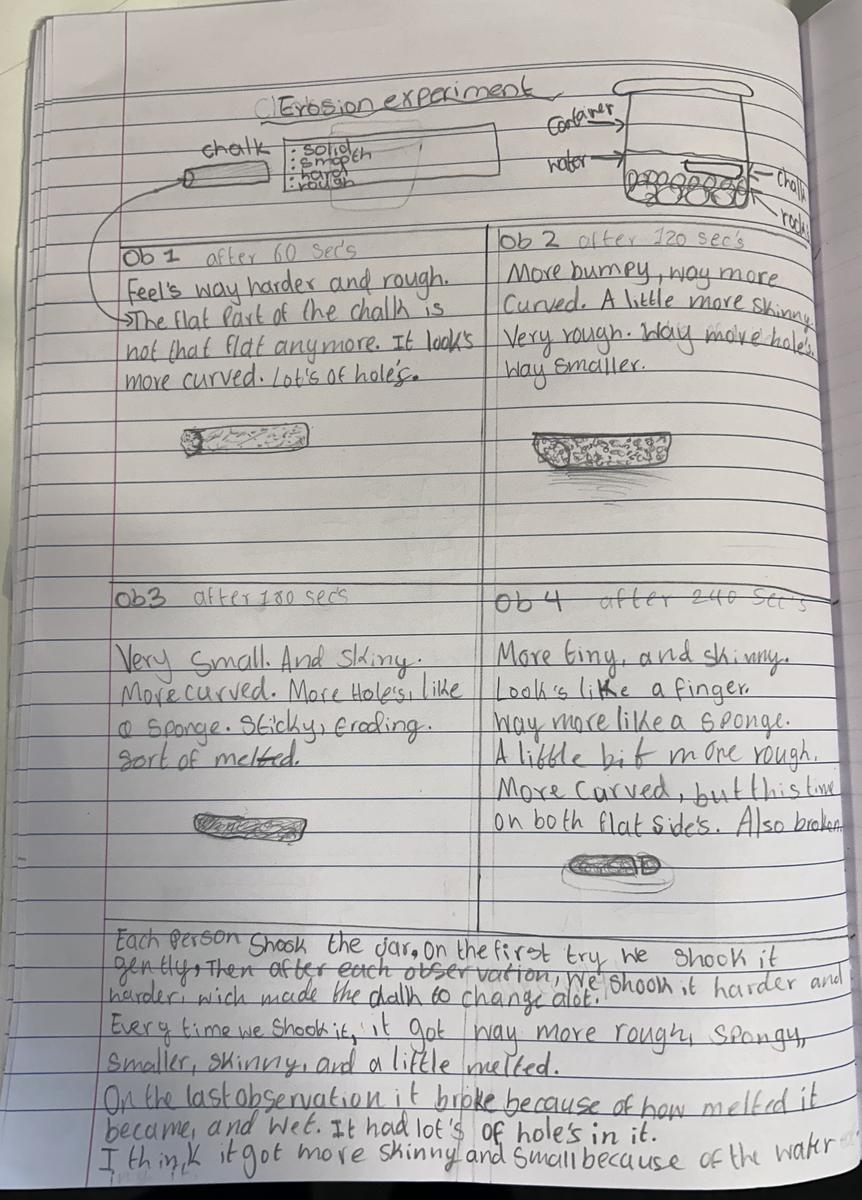 Erosion experiment
chalk
: solid
: smooth
: hard
: rough
Container
water
chalk
rocks
Ob 1 after 60 sec's
Feel's way harder and rough.
The flat Part of the chalk is
not that flat anymore. It look's
more curved. Lot's of hole's.
Ob 2 after 120 sec's
More bumpy, way more
Curved. A little more skinny
Very rough. Way more hole's.
Way smaller.
Ob3 after 180 sec's
Very Small. And Skiny.
More curved. More Hole's, like
a sponge. Sticky, Eroding.
Sort of melted.
Ob 4 after 240 Sec's
More tiny, and skinny.
Look's like a finger.
Way more like a sponge.
A little bit more rough.
More Curved, but this time
on both flat side's. Also broken.
Each Person Shook the Jar, On the first try we shook it
gently, Then after each observation, we shook it harder and
harder, wich made the chalk to change alot.
Every time we Shook it, it got way more rough, spongy,
Smaller, skinny, and a little melted.
On the last observation it broke because of how melted it
became, and wet. It had lot's of hole's in it.
I think it got more skinny and small because of the water